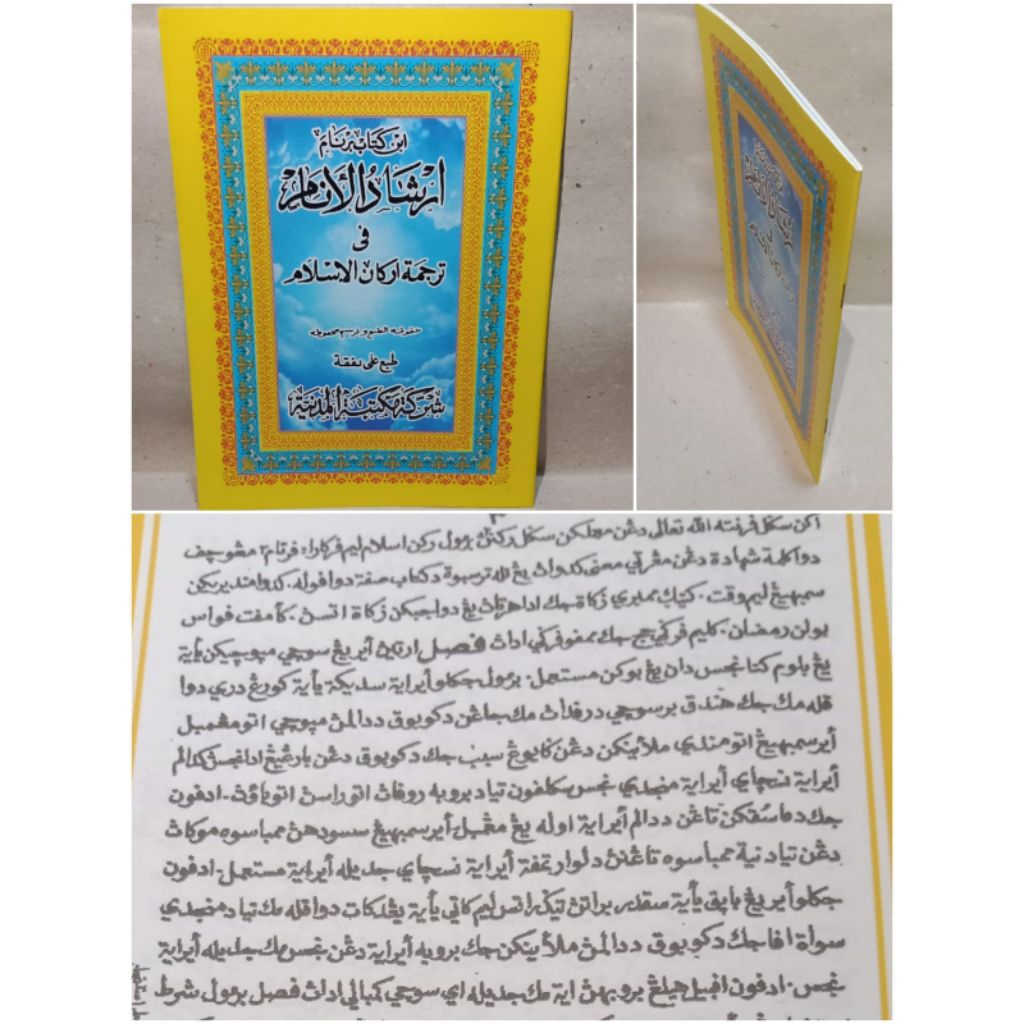 اين كتاب برنام
ارشاد الأنام
فى
ترجمة اركان الاسلام
حقوقه الطبع و رسم محفوظه
طبع على نفقة
شركة مكتبة المدنية
اكن سݢل فرنته الله تعالى دغن مڠملكن سݢل ركنڽ برمول ركن اسلام ليم فركارا؛ فرتام٢ مڠوچف
دوا كلمة شهادة دغن مڠرتي معنى كدواڽ يڠ تله ترسبوة دكتاب صفة دوا فوله. كدوا منديريكن
سمبهيڠ ليم وقت. كتيݢ ممبري زكاة جك اد اهرتاڽ يڠ دواجبكن زكاة اتسڽ. كأمفت فواس
بولن رمضان. كليم فركي حج جك ممفو فركي اداڽ فصل ارتيڽ أير يڠ سوچي مڽوچيكن يأية
يڠ بلوم كنا نجس دان يڠ بوكن مستعمل. برمول جكلو أيراية سديكة يأية كورڠ دري دوا
قله مك جك هندق برسوچي درفداڽ مك جاغن دكوبوق ددالمڽ مڽوچي اتو مڠمبل
أير سمبهيڠ اتو مندي ملأينكن دغن كايوڠ سبب جك دكوبوق دغن بارڠيڠ اد نجسڽ كدالم
أيراية نسچاي أيراية منجدي نجس سكلفون تياد بروبه روفاڽ اتو راسڽ اتو باؤڽ. ادفون
جك دماسقكن تاغن ددالم أيراية اوله يڠ مڠمبل أير سمبهيڠ سسودهڽ ممباسوه موكاڽ
دغن تياد نية ممباسوه تاغنڽ دلوار تمفة أيراية نسچاي جديله أيراية مستعمل. ادفون
جكلو أير يڠ باڽق يأية سقدر براتڽ تيݢ راتس ليم كاتي يأية يڠ دكات دوا قله مك تياد منجدي
سواة افا جك دكوبوق ددالمڽ ملأينكن جك بروبه أيراية دغن نجس مك جديله أيراية
نجس. ادفون افبيل هيلڠ بروبهڽ اية مك جديله اي سوچي كمبالي اداڽ فصل برمول شرط